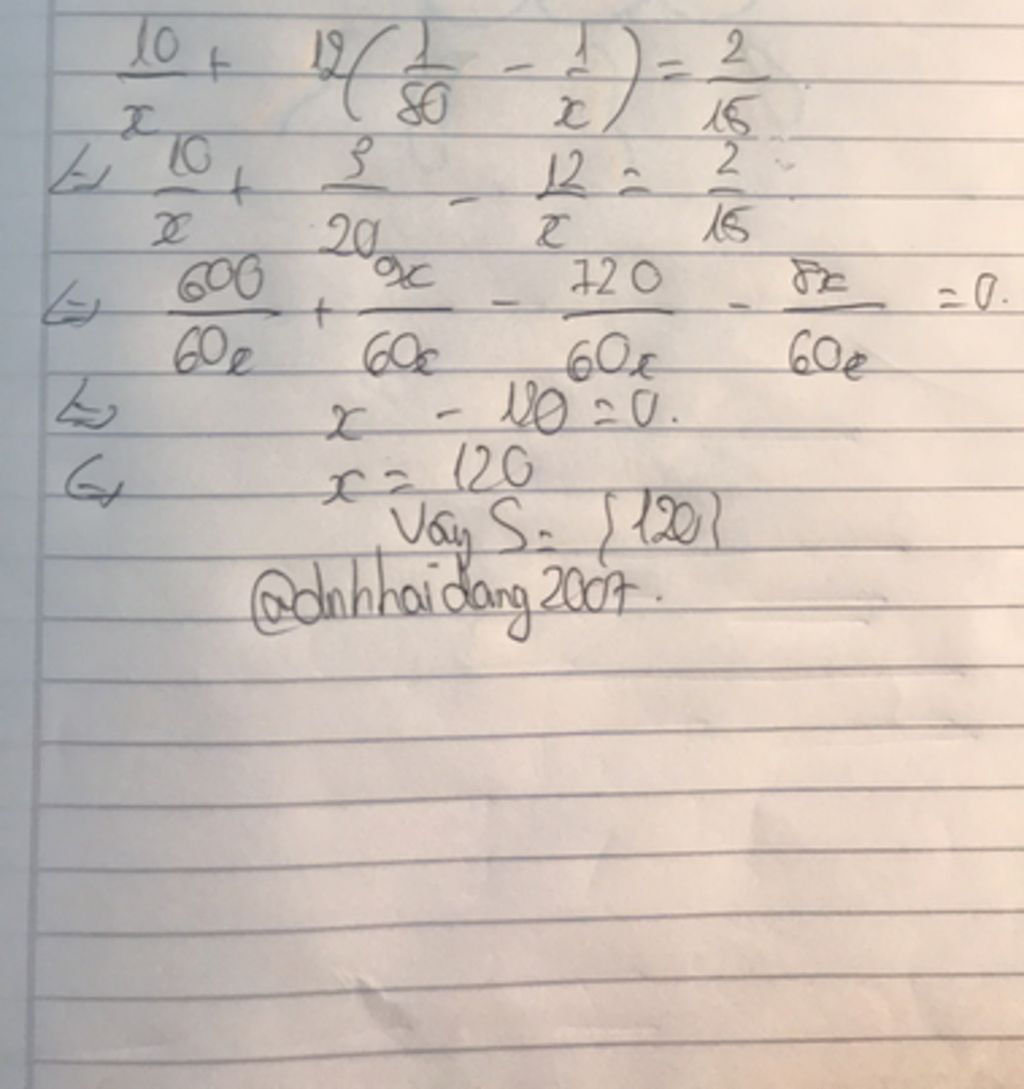 10/x + 12(1/80 - 1/x) = 2/15
<=> 10/x + 3/20 - 12/x = 2/15
<=> 600/60x + 9x/60x - 720/60x - 8x/60x = 0.
<=> x - 120 = 0.
<=> x = 120
Vậy S = {120}
@dnhhaidang2007.